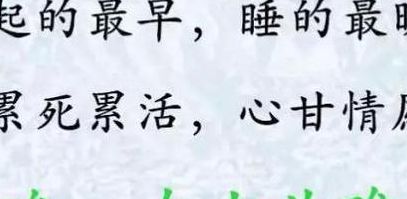 起的最早，睡的最晚
累死累活，心甘情愿